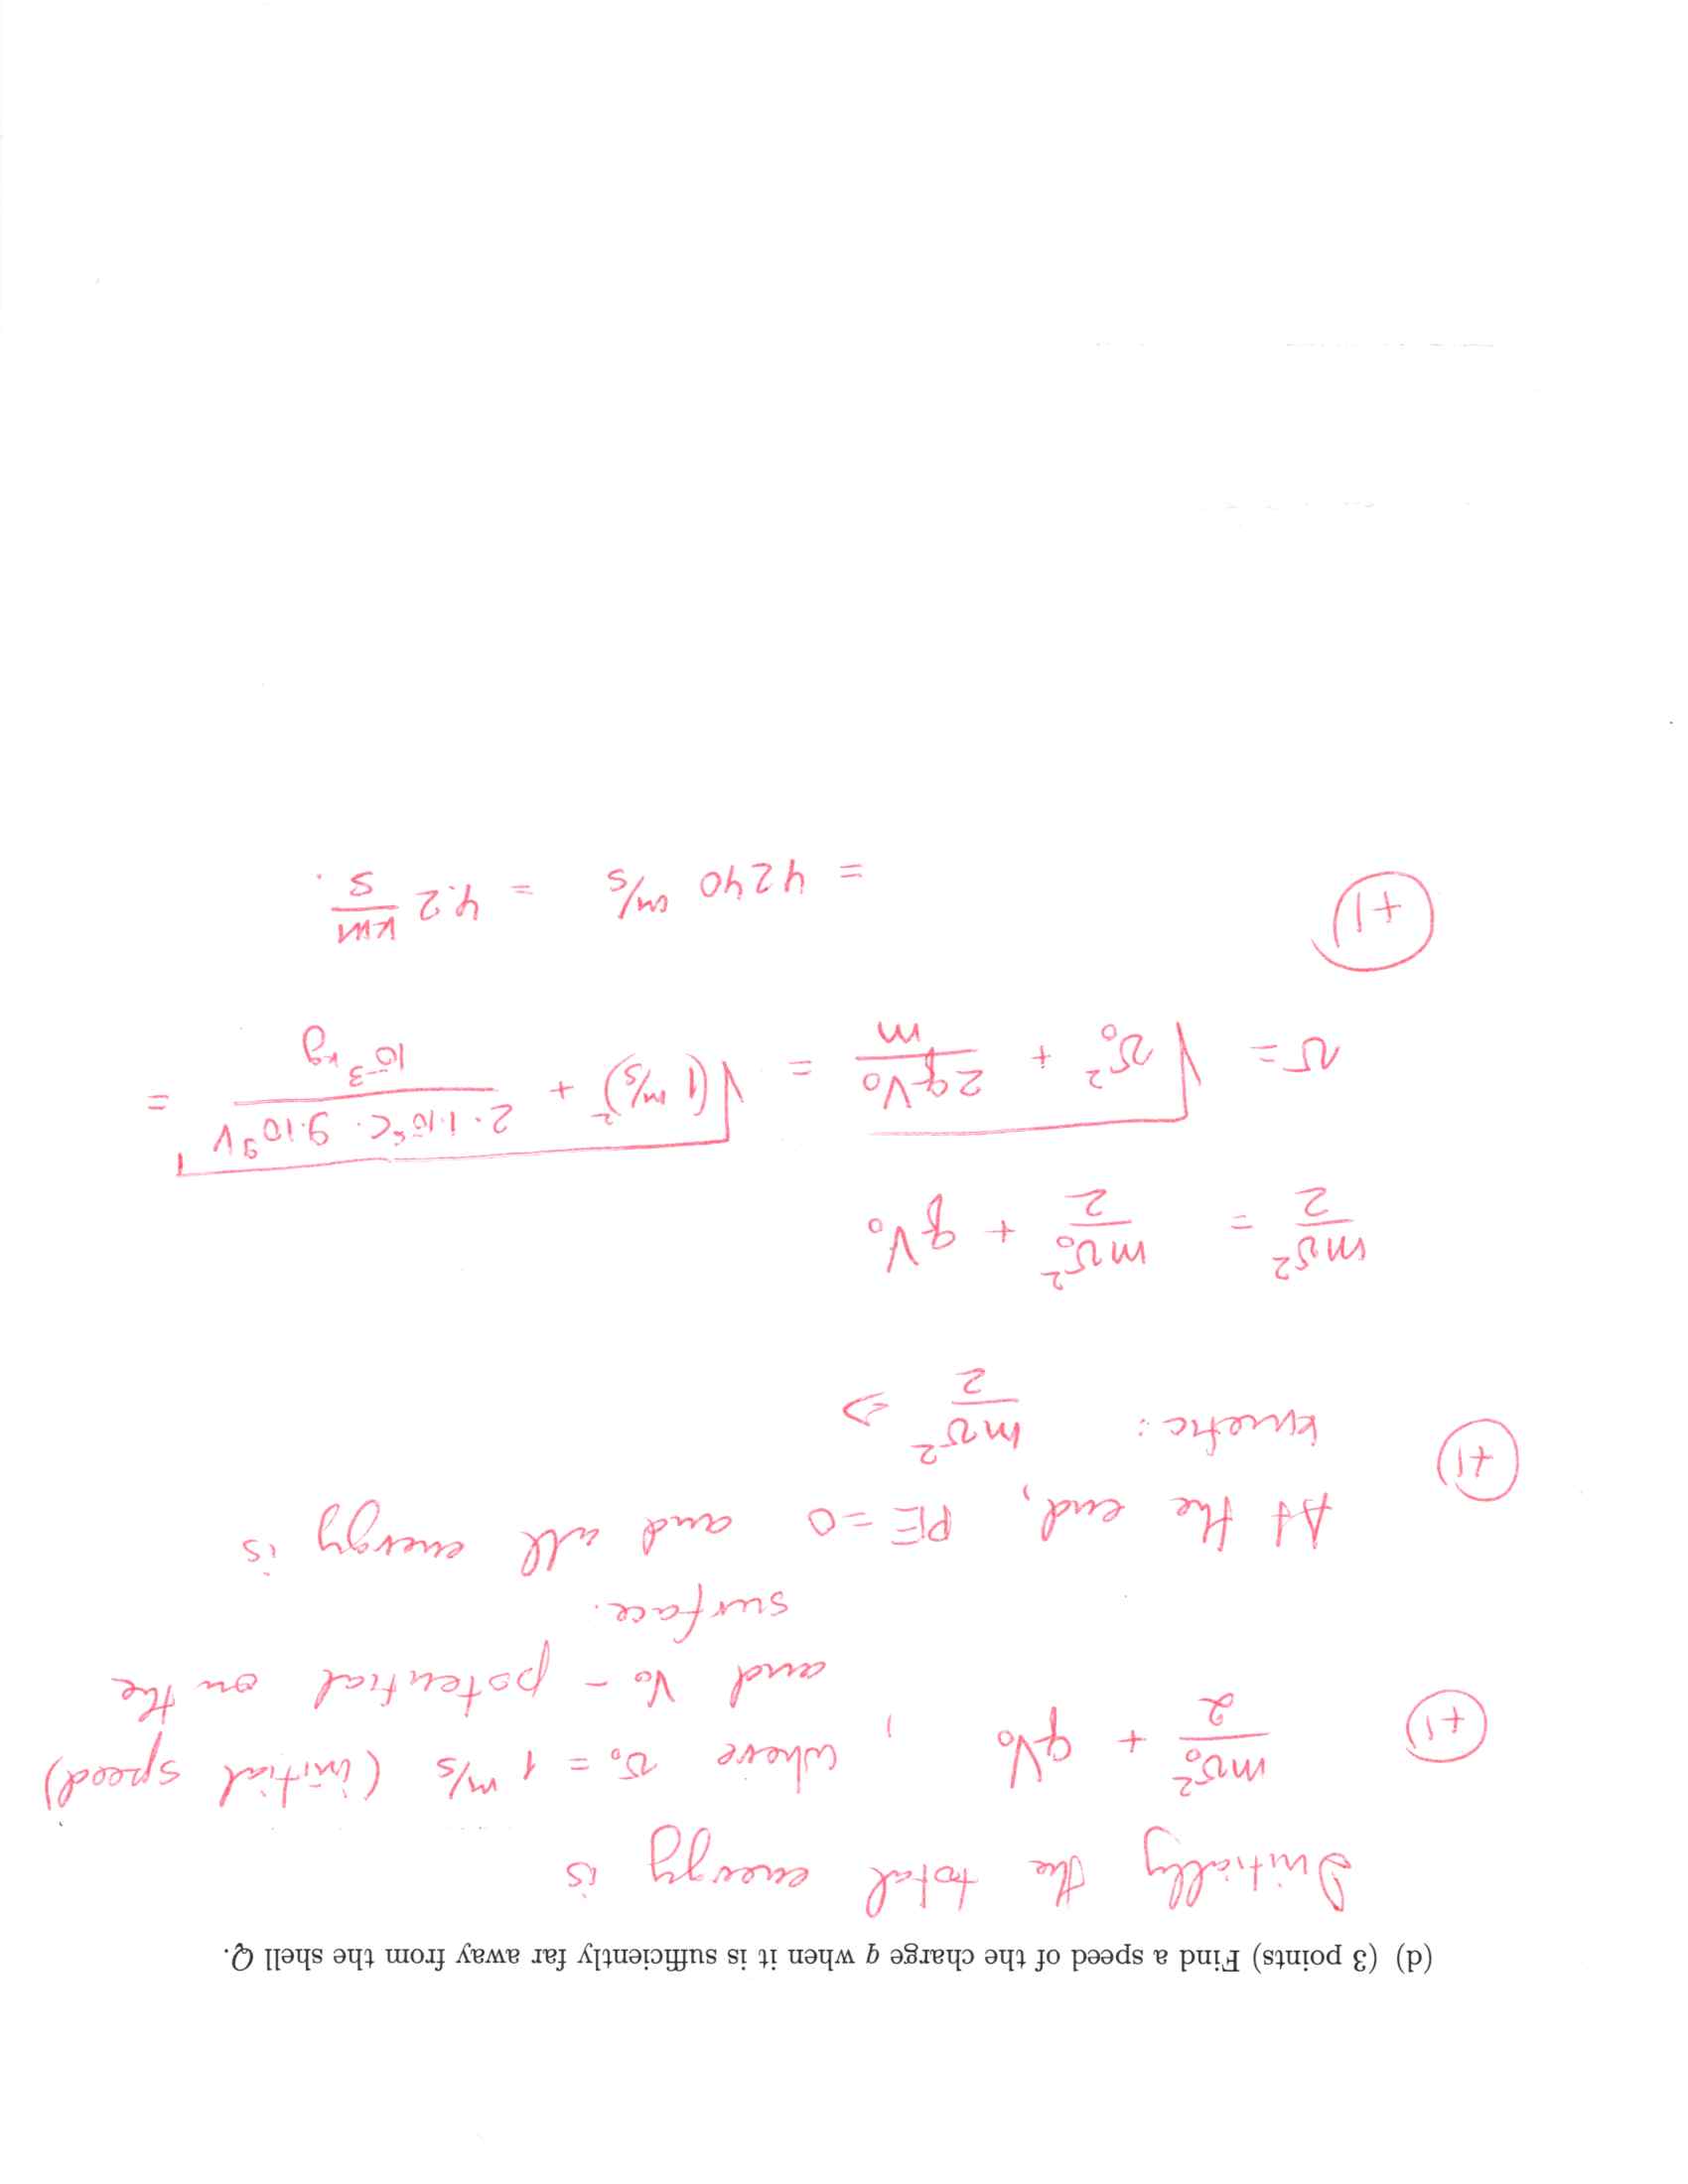 (d) (3 points) Find a speed of the charge q when it is sufficiently far away from the shell Q.
Initially the total energy is
(+1) mv₀²/2 + qV₀ , where v₀ = 1 m/s (initial speed)
and V₀ - potential on the
surface.
At the end, PE = 0 and all energy is
(+1) kinetic: mv²/2 ⇒
mv²/2 = mv₀²/2 + qV₀
v = √(v₀² + 2qV₀/m) = √((1 m/s)² + 2·1·10⁻⁶C · 9·10⁹V / 10⁻³kg) =
(+1) = 4240 m/s = 4.2 km/s.